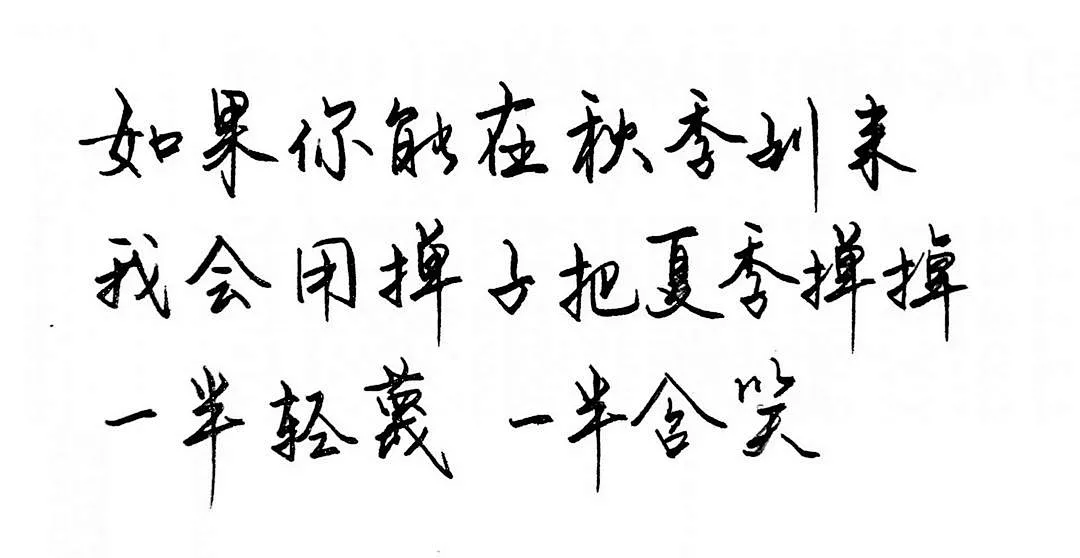 如果你能在秋季到来
我会用掸子把夏季掸掉
一半轻蔑 一半含笑